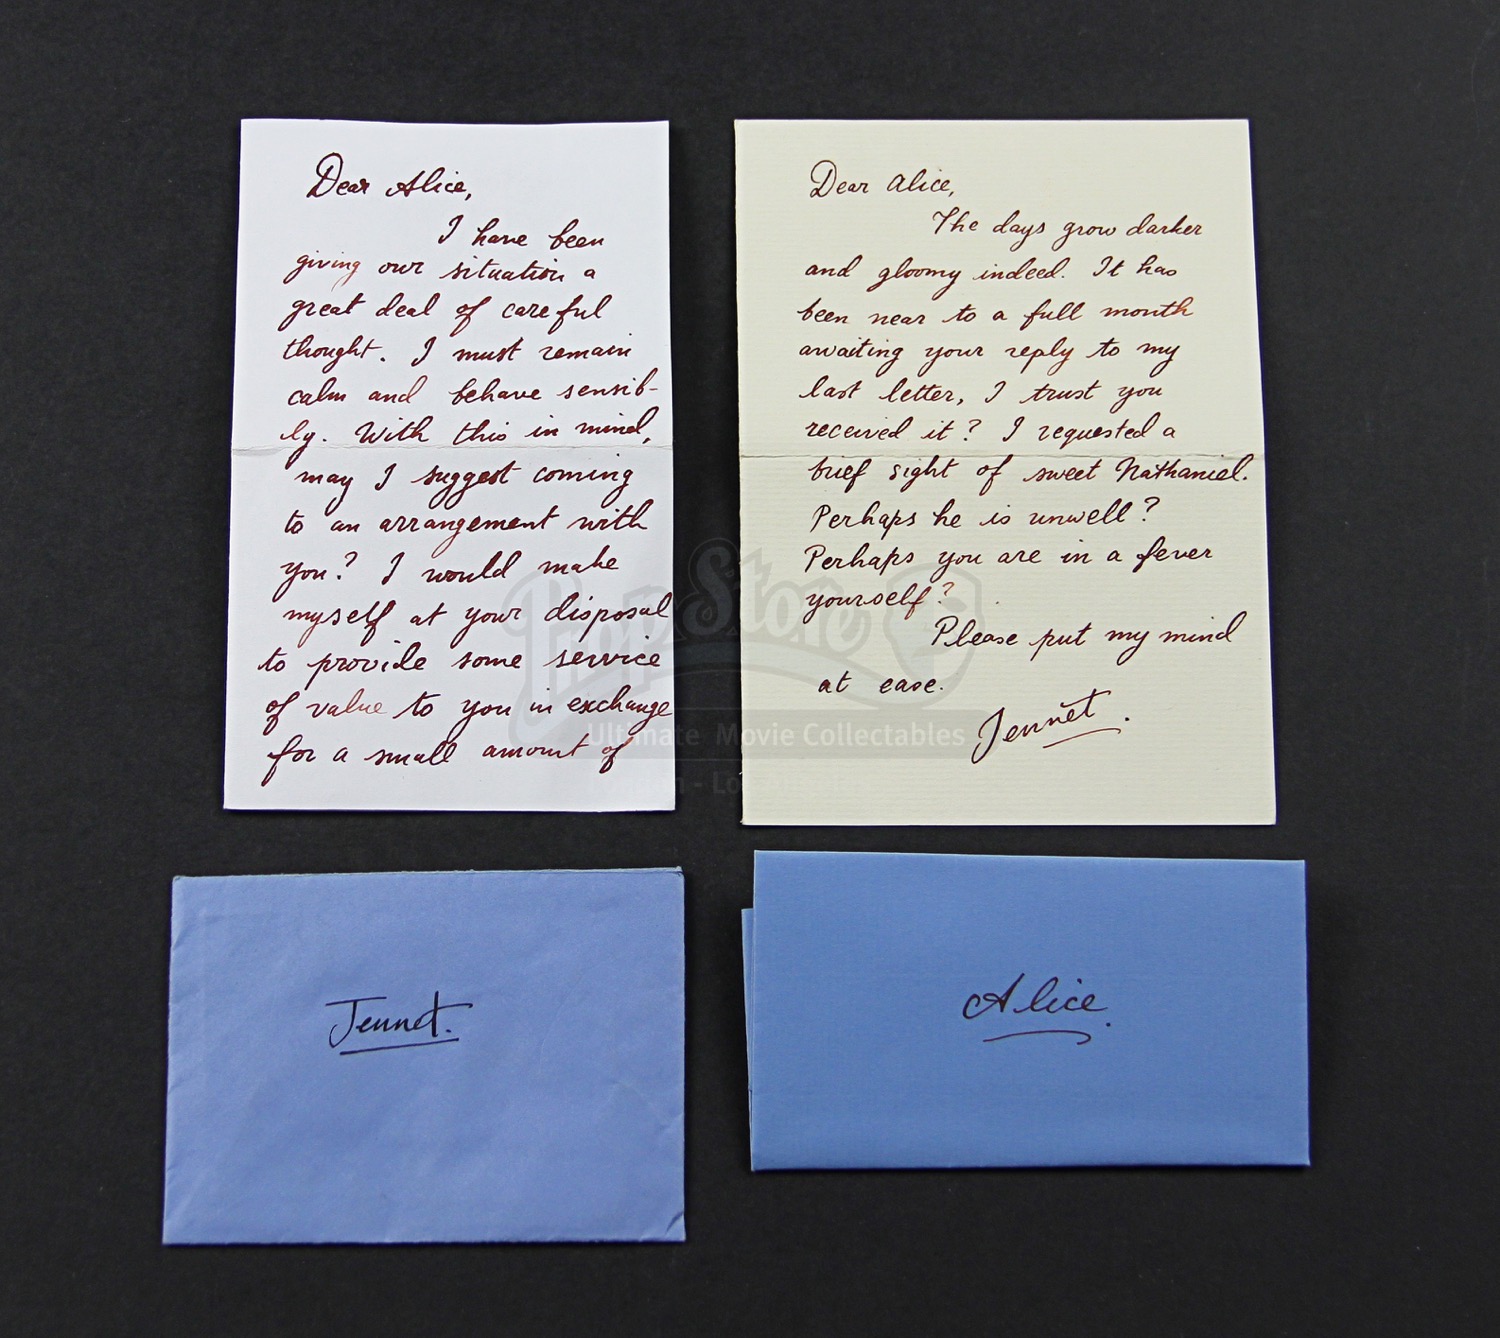 Dear Alice,
I have been
giving our situation a
great deal of careful
thought. I must remain
calm and behave sensib-
ly. With this in mind,
may I suggest coming
to an arrangement with
you? I would make
myself at your disposal
to provide some service
of value to you in exchange
for a small amount of
Dear Alice,
The days grow darker
and gloomy indeed. It has
been near to a full month
awaiting your reply to my
last letter, I trust you
received it? I requested a
brief sight of sweet Nathaniel.
Perhaps he is unwell?
Perhaps you are in a fever
yourself?
Please put my mind
at ease.
Jennet.
Prop Store
Ultimate Movie Collectables
Jennet.
Alice.